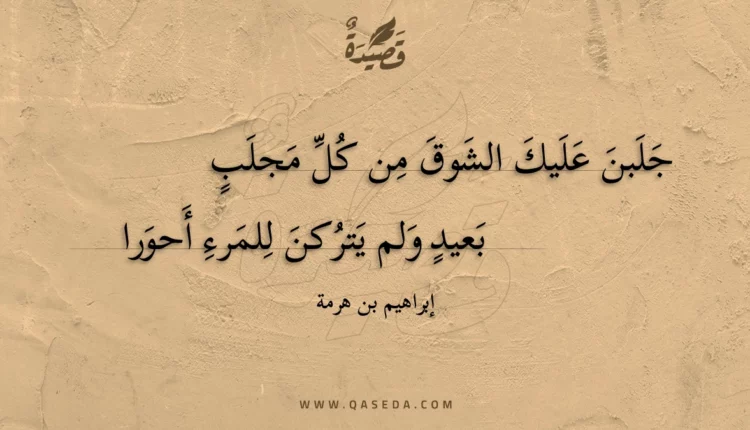 قَصِيدَةٌ
جَلَبنَ عَلَيكَ الشَوقَ مِن كُلِّ مَجلَبٍ
بَعيدٍ وَلم يَترُكنَ لِلمَرءِ أَحوَرا
إبراهيم بن هرمة
WWW.QASEDA.COM